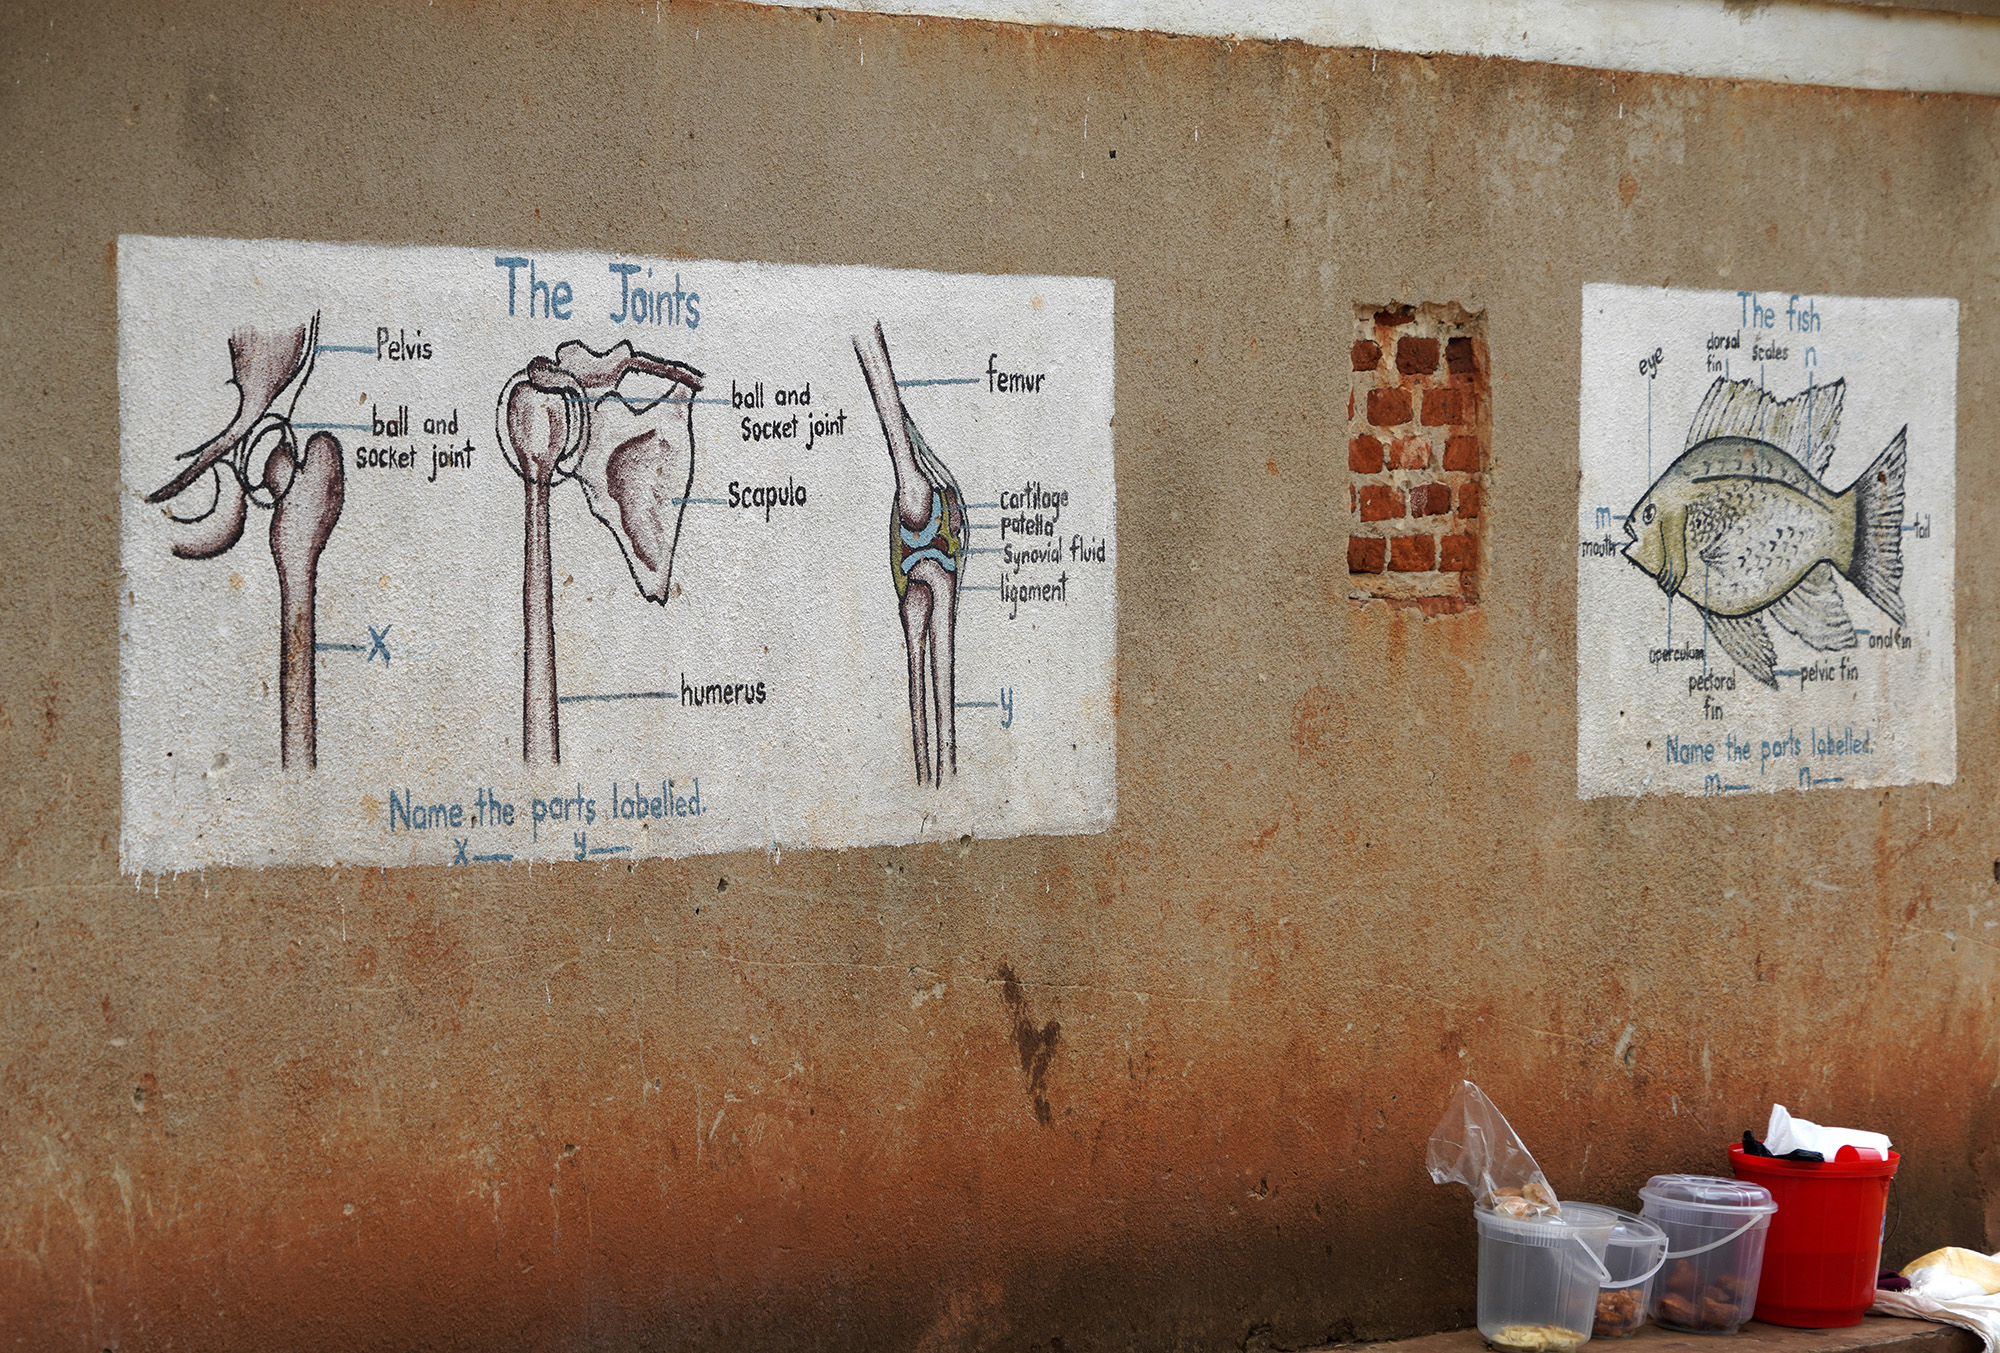 The Joints
Pelvis
ball and
socket joint
X
ball and
Socket joint
Scapula
humerus
femur
cartilage
patella
Synovial fluid
ligament
y
Name the parts labelled.
x— y—
The fish
eye
dorsal
fin
scales
n
m
mouth
tail
operculum
pectoral
fin
pelvic fin
anal fin
Name the parts labelled.
m— n—